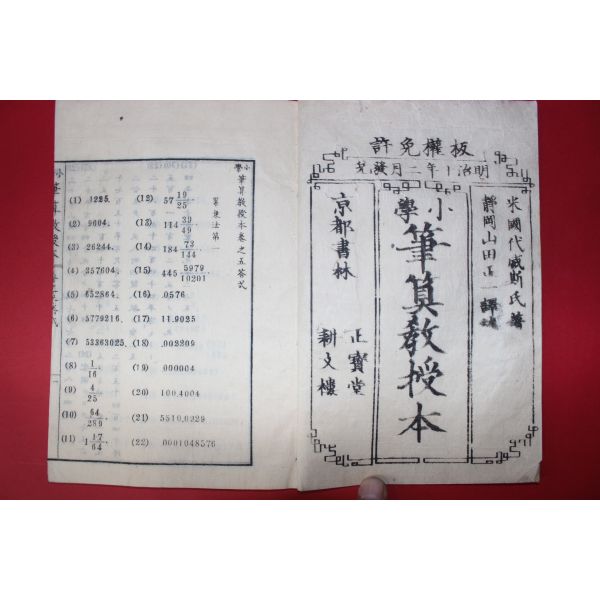 板權免許
明治十年二月發兌
米國代威斯氏著
靜岡山田正一譯
小學
筆算教授本
京都書林
正寶堂
耕文樓
小學筆算教授本卷之五答式
法第一
(1) 1225.
(2) 9604.
(3) 26244.
(4) 357604.
(5) 652864.
(6) 5779216.
(7) 53363025.
(8) 1/16.
(9) 4/25
(10) 64/289
(11) 1 17/64.
(12) 57 19/25.
(13) 114 39/49
(14) 184 73/144
(15) 445 5979/10201
(16) .0576
(17) 11.9025
(18) .002209
(19) .000004
(20) 100.4004
(21) 5510.0929
(22) .0001048576